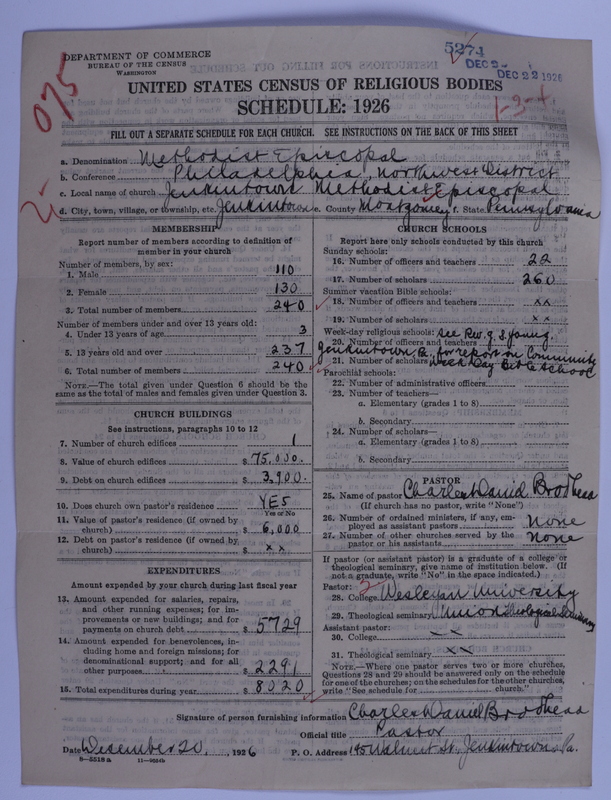 DEPARTMENT OF COMMERCE
BUREAU OF THE CENSUS
WASHINGTON
5274
DEC 2
DEC 22 1926
075
1-3-4
2-
UNITED STATES CENSUS OF RELIGIOUS BODIES
SCHEDULE: 1926
FILL OUT A SEPARATE SCHEDULE FOR EACH CHURCH. SEE INSTRUCTIONS ON THE BACK OF THIS SHEET
a. Denomination Methodist Episcopal
b. Conference Philadelphia, Northwest District
c. Local name of church Jenkintown Methodist Episcopal
d. City, town, village, or township, etc. Jenkintown e. County Montgomery f. State Pennsylvania
MEMBERSHIP
Report number of members according to definition of
member in your church
Number of members, by sex:
1. Male 110
2. Female 130
3. Total number of members 240
Number of members under and over 13 years old:
4. Under 13 years of age 3
5. 13 years old and over 237
6. Total number of members 240
NOTE.—The total given under Question 6 should be the
same as the total of males and females given under Question 3.
CHURCH BUILDINGS
See instructions, paragraphs 10 to 12
7. Number of church edifices 1
8. Value of church edifices $ 75,000.
9. Debt on church edifices $ 3,900.
10. Does church own pastor's residence YES
Yes or No
11. Value of pastor's residence (if owned by
church) $ 6,000
12. Debt on pastor's residence (if owned by
church) $ x x
EXPENDITURES
Amount expended by your church during last fiscal year
13. Amount expended for salaries, repairs,
and other running expenses; for im-
provements or new buildings; and for
payments on church debt $ 5729
14. Amount expended for benevolences, in-
cluding home and foreign missions; for
denominational support; and for all
other purposes $ 2291
15. Total expenditures during year $ 8020
CHURCH SCHOOLS
Report here only schools conducted by this church
Sunday schools:
16. Number of officers and teachers 22
17. Number of scholars 260
Summer vacation Bible schools:
18. Number of officers and teachers x x
19. Number of scholars x x
Week-day religious schools: See Rev. G. S. Young,
20. Number of officers and teachers
Jenkintown, Pa., for report on Community
21. Number of scholars Week Day Bible School
Parochial schools:
22. Number of administrative officers
23. Number of teachers—
a. Elementary (grades 1 to 8)
b. Secondary
24. Number of scholars—
a. Elementary (grades 1 to 8)
b. Secondary
PASTOR
25. Name of pastor Charles David Brodhead
(If church has no pastor, write "None")
26. Number of ordained ministers, if any, em-
ployed as assistant pastors None
27. Number of other churches served by the
pastor or his assistants None
If pastor (or assistant pastor) is a graduate of a college or
theological seminary, give name of institution below. (If
not a graduate, write "No" in the space indicated.)
Pastor: 2-
28. College Wesleyan University
29. Theological seminary Union Theological Seminary
Assistant pastor:
30. College x x
31. Theological seminary x x
NOTE.—Where one pastor serves two or more churches,
Questions 28 and 29 should be answered only on the schedule
for one of the churches; on the schedules for the other churches,
write "See schedule for church."
Signature of person furnishing information Charles David Brodhead
Official title Pastor
Date December 20, 1926 P. O. Address 195 Walnut St., Jenkintown, Pa.
8-5518a 11-9664b